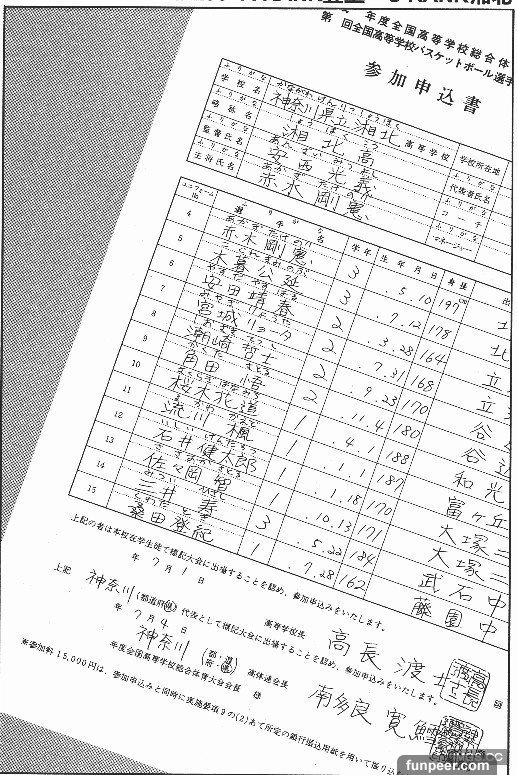 年度全国高等学校総合体
第 回全国高等学校バスケットボール選手
参加申込書
ふりがな かながわけんりつ しょうほく
学校名 神奈川県立 湘北 高等学校 学校所在地
ふりがな しょうほくこう
略称名 湘北高
ふりがな あんざい みつよし ふりがな
監督氏名 安西光義 代表者氏名
ふりがな あかぎ たけのり ふりがな
主将氏名 赤木剛憲 コーチ
ふりがな
マネージャー
ユニフォーム 選手名 学年 生年月日 身長 出
4 赤木剛憲 3 . 5. 10 197cm
5 木暮公延 3 . 7. 12 178 北
6 安田靖春 2 . 3. 28 164 立
7 宮城リョータ 2 . 7. 31 168 立
8 潮崎哲士 2 . 9. 23 170 谷
9 角田悟 2 . 11. 4 180 谷
10 桜木花道 1 . 4. 1 188 和光
11 流川楓 1 . 1. 1 187 富ヶ丘
12 石井健太郎 1 . 1. 18 170 大塚二
13 佐々岡智 1 . 10. 13 171 大塚二
14 三井寿 3 . 5. 22 184 武石中
15 桑田登紀 1 . 7. 28 162 藤園中
上記の者は本校在学生徒で標記大会に出場することを認め、参加申込みをいたします。
年 7 月 1 日
高等学校長 高長 渡士 印
上記 神奈川 (都道府県) 代表として標記大会に出場することを認め、参加申込みをいたします。
年 7 月 4 日
神奈川 (都・道 府・県) 高体連会長 南多良 寛
年度全国高等学校総合体育大会会長 様
※参加料15,000円は、参加申込みと同時に実施要項9の(2)あて所定の銀行振込用紙を用いて振り込
funpeer.com